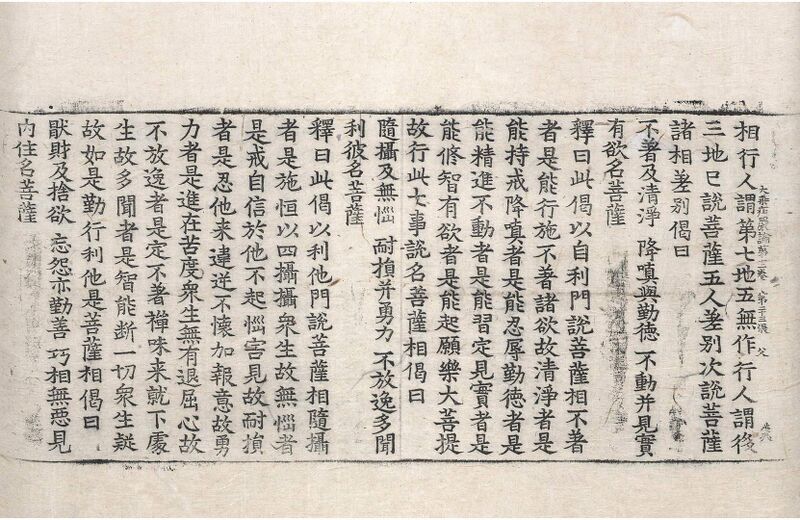 相行人謂第七地五無作行人謂後
三地已說菩薩五人差別次說菩薩
諸相差別偈曰
不著及清淨 降嗔與勤德 不動并見實
有欲名菩薩
釋曰此偈以自利門說菩薩相不著
者是能行施不著諸欲故清淨者是
能持戒降嗔者是能忍辱勤德者是
能精進不動者是能習定見實者是
能修智有欲者是能起願樂大菩提
故行此七事說名菩薩相偈曰
隨攝及無惱 耐損并勇力 不放逸多聞
利彼名菩薩
釋曰此偈以利他門說菩薩相隨攝
者是施恒以四攝攝衆生故無惱者
是戒自信於他不起惱害見故耐損
者是忍他来違逆不懷加報意故勇
力者是進在苦度衆生無有退屈心故
不放逸者是定不著禪味来就下處
生故多聞者是智能斷一切衆生疑
故如是勤行利他是菩薩相偈曰
猒財及捨欲 忘怨亦勤善 巧相無惡見
内住名菩薩